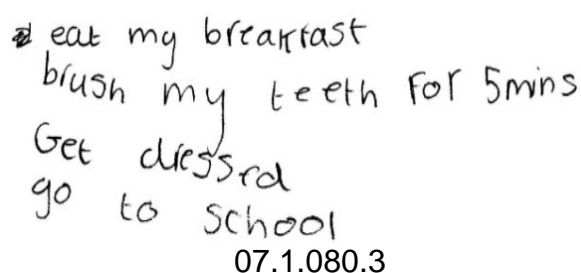 eat my breakfast
brush my teeth for 5mins
Get dressed
go to school
07.1.080.3